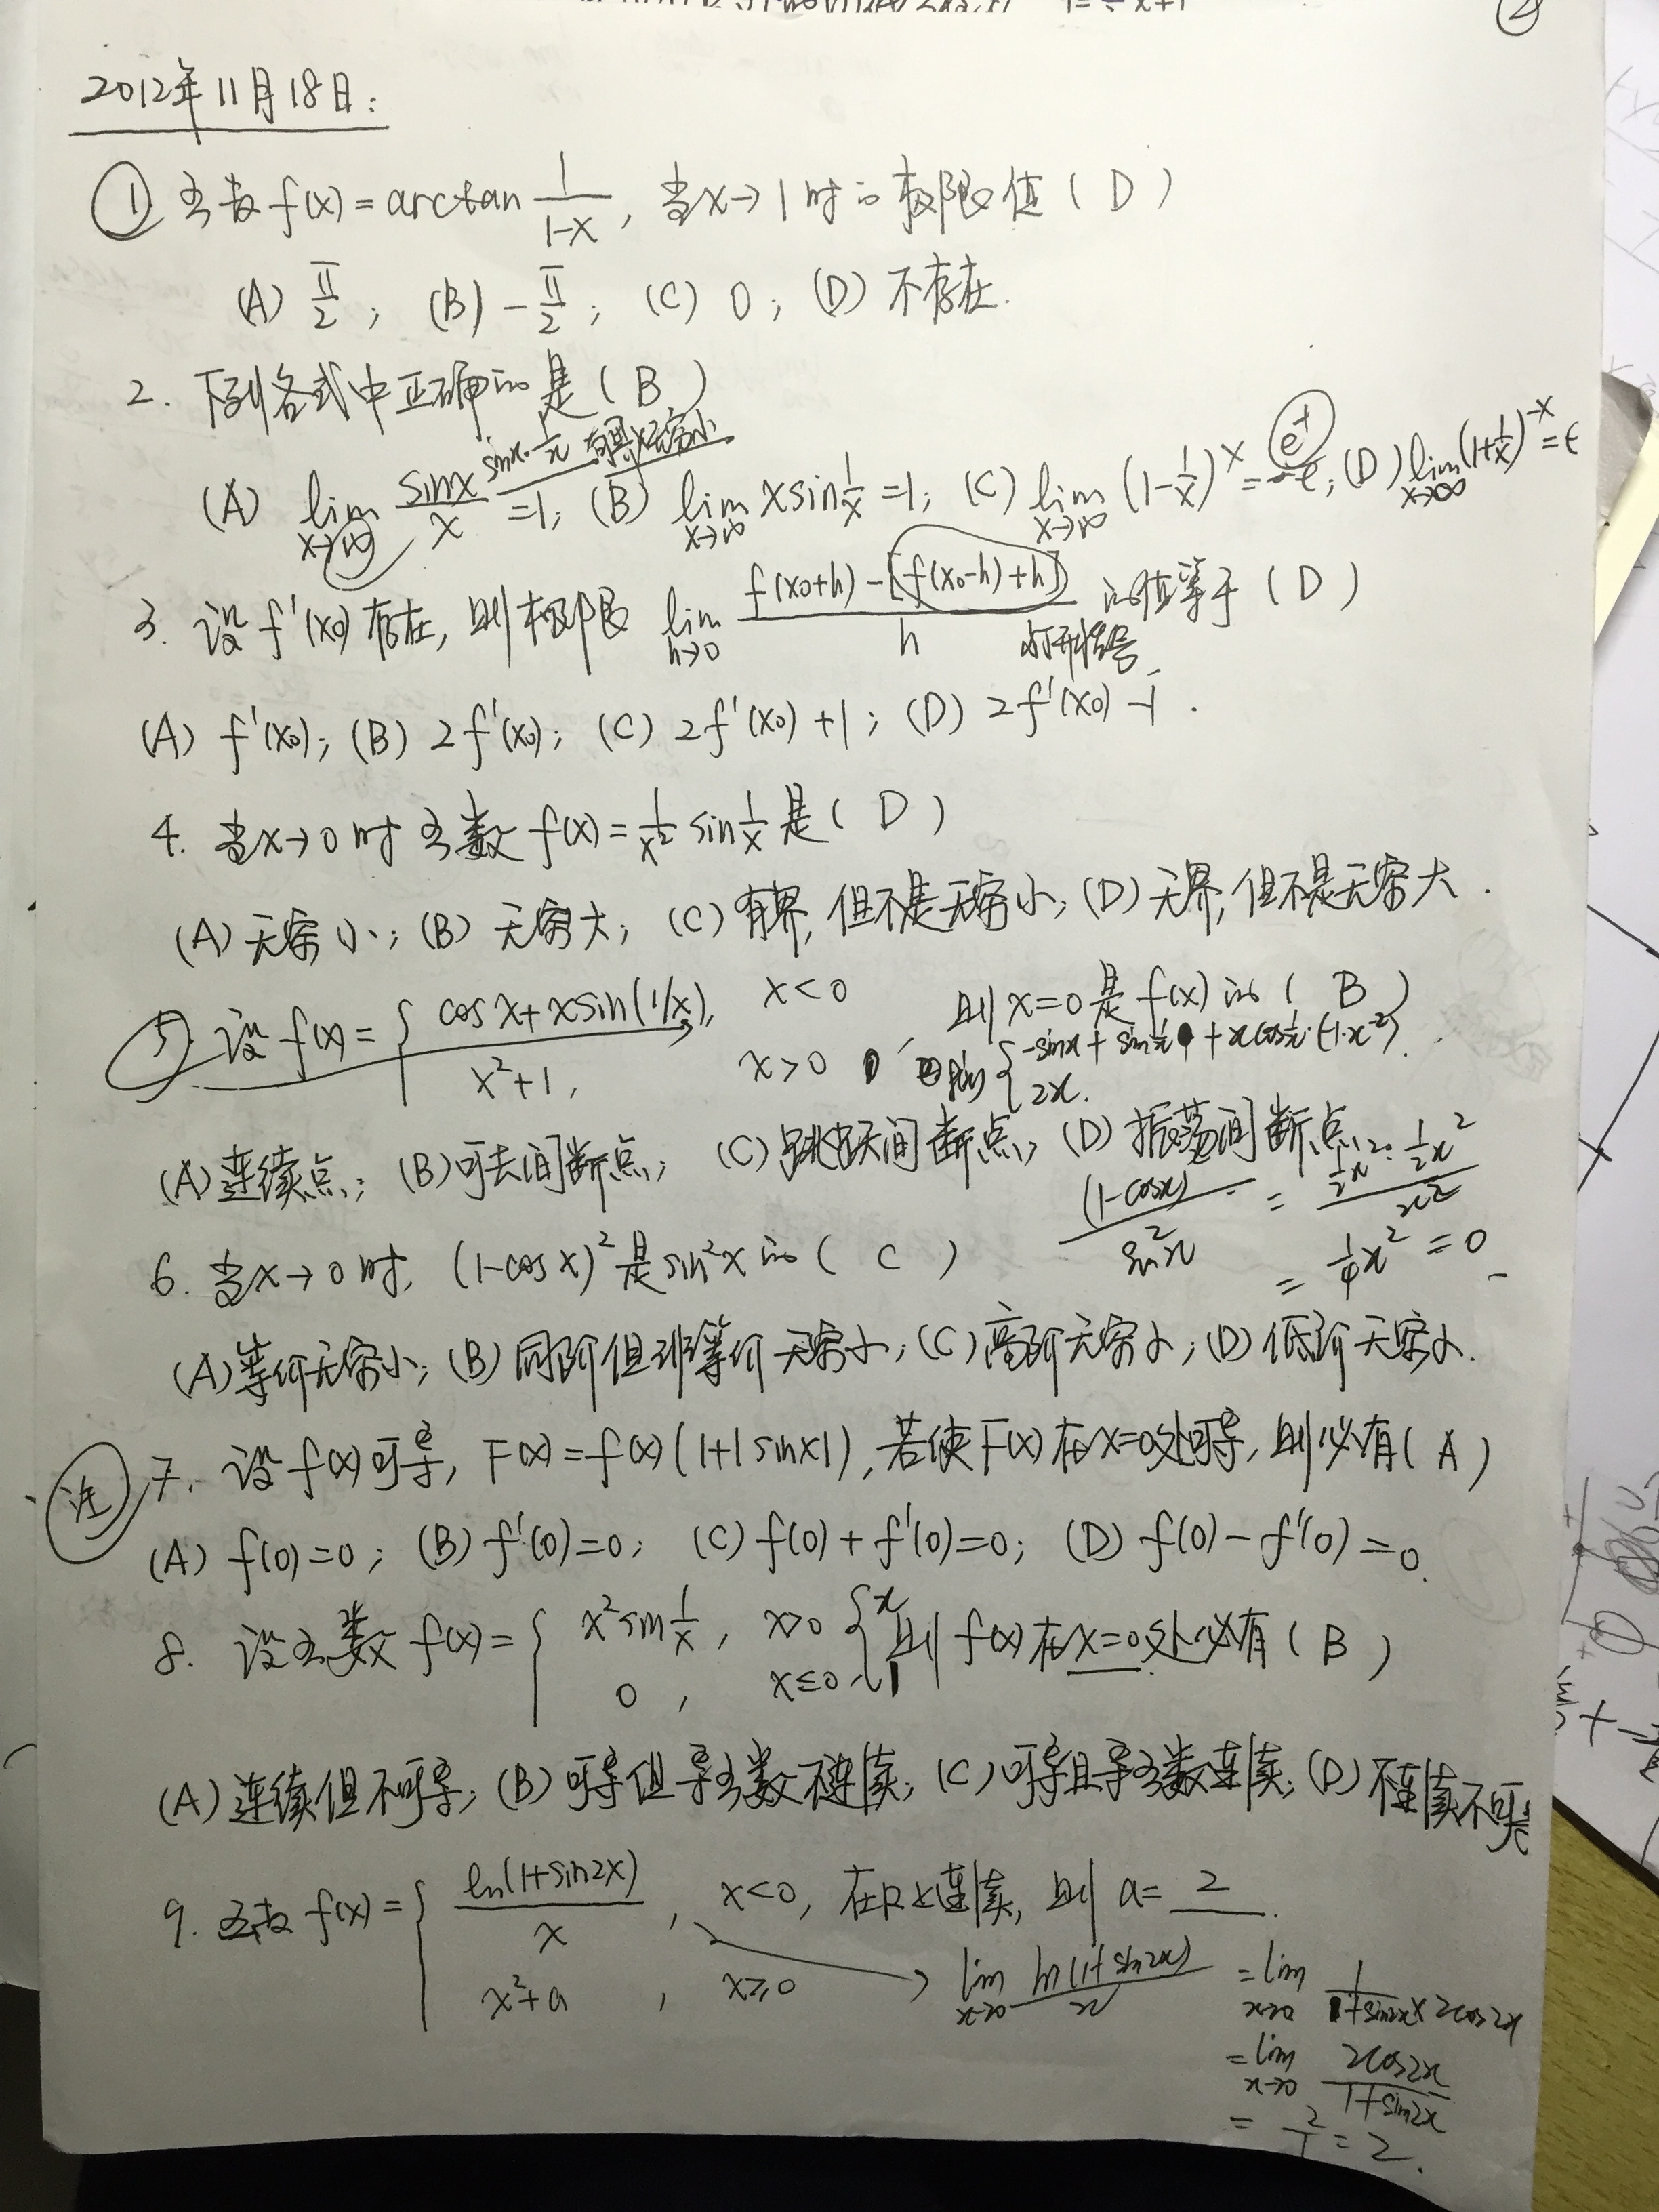 ②
2012年11月18日:
① 函数 f(x)=arctan 1/(1-x), 当x→1时的极限值 ( D )
(A) π/2; (B) -π/2; (C) 0; (D) 不存在.
2. 下列各式中正确的是 ( B )
sinx·1/x 有界×无穷小
(A) lim x→∞ sinx/x =1; (B) lim x→∞ xsin1/x =1; (C) lim x→∞ (1-1/x)^x = -e; (D) lim x→∞ (1+1/x)^-x = e
3. 设 f'(x0)存在, 则极限 lim h→0 (f(x0+h)-[f(x0-h)+h])/h 的值等于 ( D )
打开括号
(A) f'(x0); (B) 2f'(x0); (C) 2f'(x0)+1; (D) 2f'(x0)-1.
4. 当x→0时函数 f(x)=1/x² sin1/x 是 ( D )
(A) 无穷小; (B) 无穷大; (C) 有界, 但不是无穷小; (D) 无界, 但不是无穷大.
5. 设 f(x)= { cosx+xsin(1/x), x<0 则x=0是f(x)的 ( B )
x²+1, x>0
{ -sinx+sin1/x+xcos1/x·(-1·x^-2)
2x.
(A) 连续点; (B) 可去间断点; (C) 跳跃间断点; (D) 振荡间断点
(1-cosx)²/sin²x = (1/2x²·1/2x²)/x²
= 1/4x² = 0
6. 当x→0时, (1-cosx)²是sin²x的 ( C )
(A) 等价无穷小; (B) 同阶但非等价无穷小; (C) 高阶无穷小; (D) 低阶无穷小.
注 7. 设f(x)可导, F(x)=f(x)(1+|sinx|), 若使F(x)在x=0处可导, 则必有 ( A )
(A) f(0)=0; (B) f'(0)=0; (C) f(0)+f'(0)=0; (D) f(0)-f'(0)=0.
8. 设函数 f(x)= { x²sin1/x, x>0 则f(x)在x=0处必有 ( B )
0, x≤0
(A) 连续但不可导; (B) 可导但导函数不连续; (C) 可导且导函数连续; (D) 不连续不可导
9. 函数 f(x)= { ln(1+sin2x)/x, x<0, 在R上连续, 则 a= 2 .
x²+a, x≥0
lim x→0 ln(1+sin2x)/x = lim x→0 1/(1+sin2x) × 2cos2x
= lim x→0 2cos2x/(1+sin2x)
= 2/1 = 2.